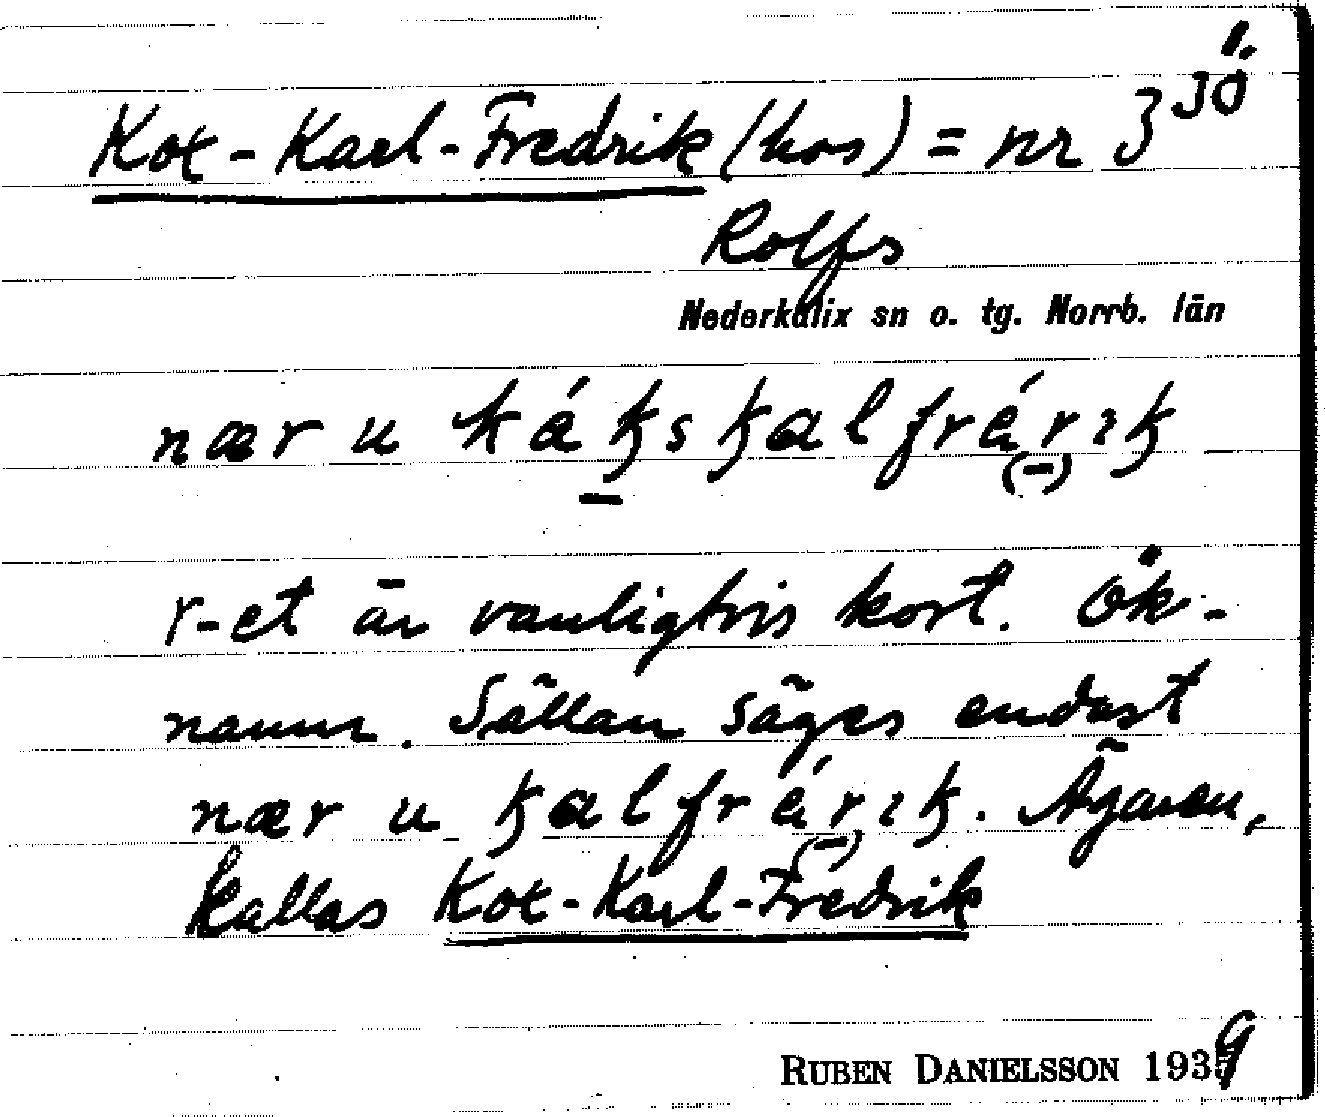 JÖ
Kok-Karl-Fredrik (hos) = nr 3
Rolfs
Nederkalix sn o. tg. Norrb. län
nær u kákskalfrérık
(-)
r-et är vanligtvis kort. Ök-
namn. Sällan säges endast
nær u kalfrérık. Ägaren,
(-)
kallas Kok-Karl-Fredrik
RUBEN DANIELSSON 1939